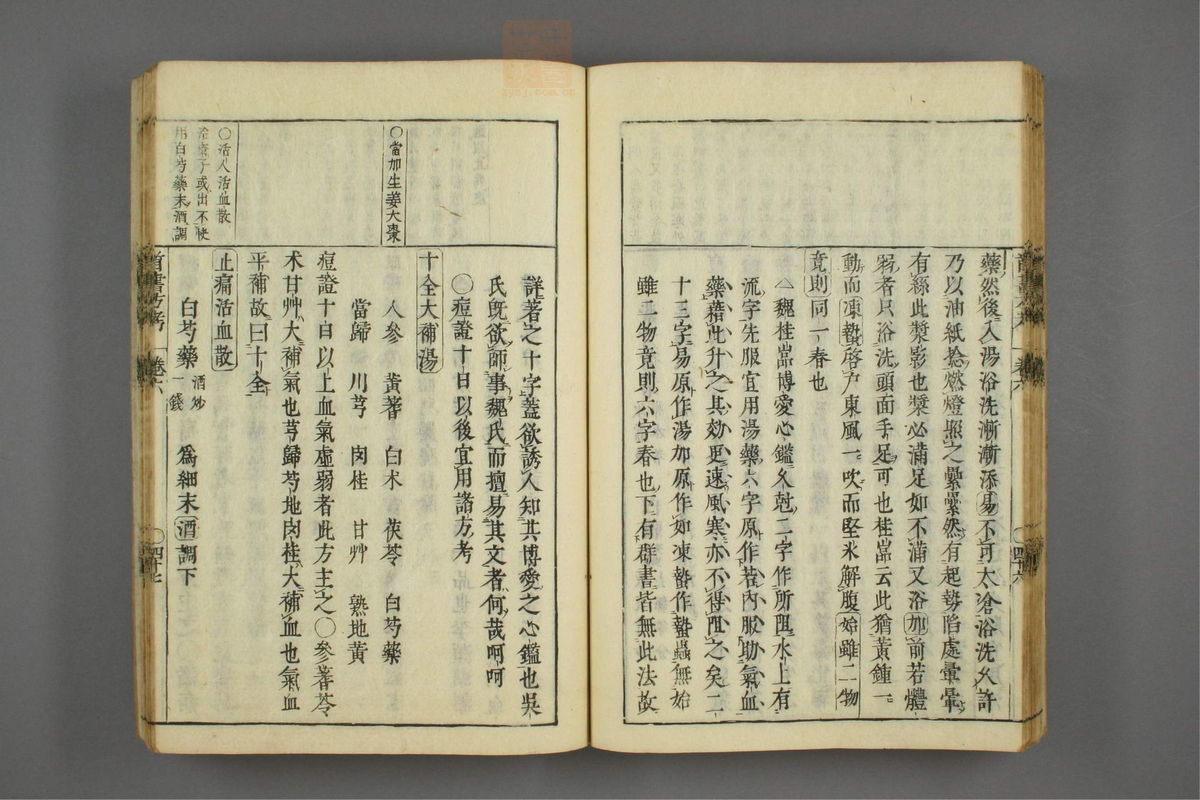 藥然後入湯浴洗漸漸添易不可太滄浴洗久許
乃以油紙捻燃燈照之纍纍然有起勢陷處暈暈
有絲此漿影也漿必滿足如不滿又浴加前若體
弱者只浴洗頭面手足可也桂嵓云此猶黃鍾一
動而凍蟄啓户東風一吹而堅氷解腹始雖二物
竟則同一春也
△魏桂嵓博愛心鑑久尅二字作所阻水上有
流字先服宜用湯藥六字原作若内服助氣血
藥藉此升之其効更速風寒亦不得阻之矣二
十三字易原作湯加原作如凍蟄作蟄蟲無始
雖二物竟則六字春也下有群書皆無此法故
卷六
四十六
詳著之十字蓋欲誘人知其博愛之心鑑也吳
氏旣欲師事魏氏而擅易其文者何哉呵呵
〇痘證十日以後宜用諸方考
十全大補湯
〇當加生姜大棗
人參 黃蓍 白术 茯苓 白芍藥
當歸 川芎 肉桂 甘艸 熟地黃
痘證十日以上血氣虛弱者此方主之〇參蓍苓
术甘艸大補氣也芎歸芍地肉桂大補血也氣血
平補故曰十全
止痛活血散
〇活人活血散
治瘡子或出不快
用白芍藥末酒調
白芍藥 酒炒一錢 爲細末酒調下
卷六
四十七